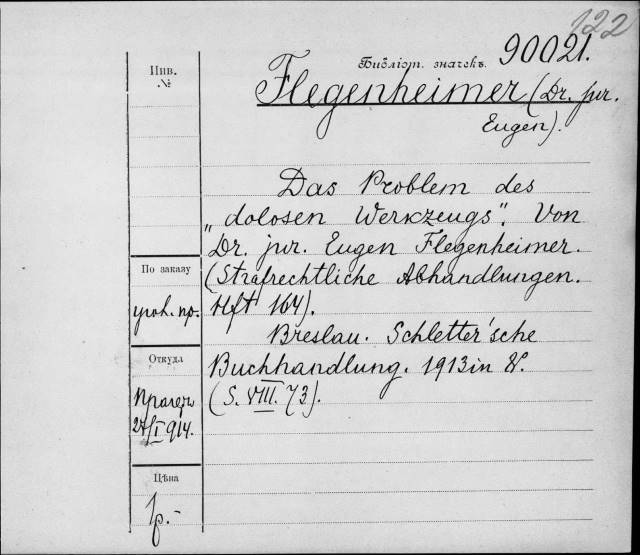 122
Библіот. значекъ 90021.
Инв.
№
Flegenheimer (Dr. jur.
Eugen).
Das Problem des
„dolosen Werkzeugs“. Von
Dr. jur. Eugen Flegenheimer.
(Strafrechtliche Abhandlungen.
Hft 164).
Breslau. Schletter'sche
Buchhandlung. 1913 in 8°.
(S. VIII. 73).
По заказу
угол. пр.
Откуда
Прагеръ
24/I 914.
Цѣна
1р.-